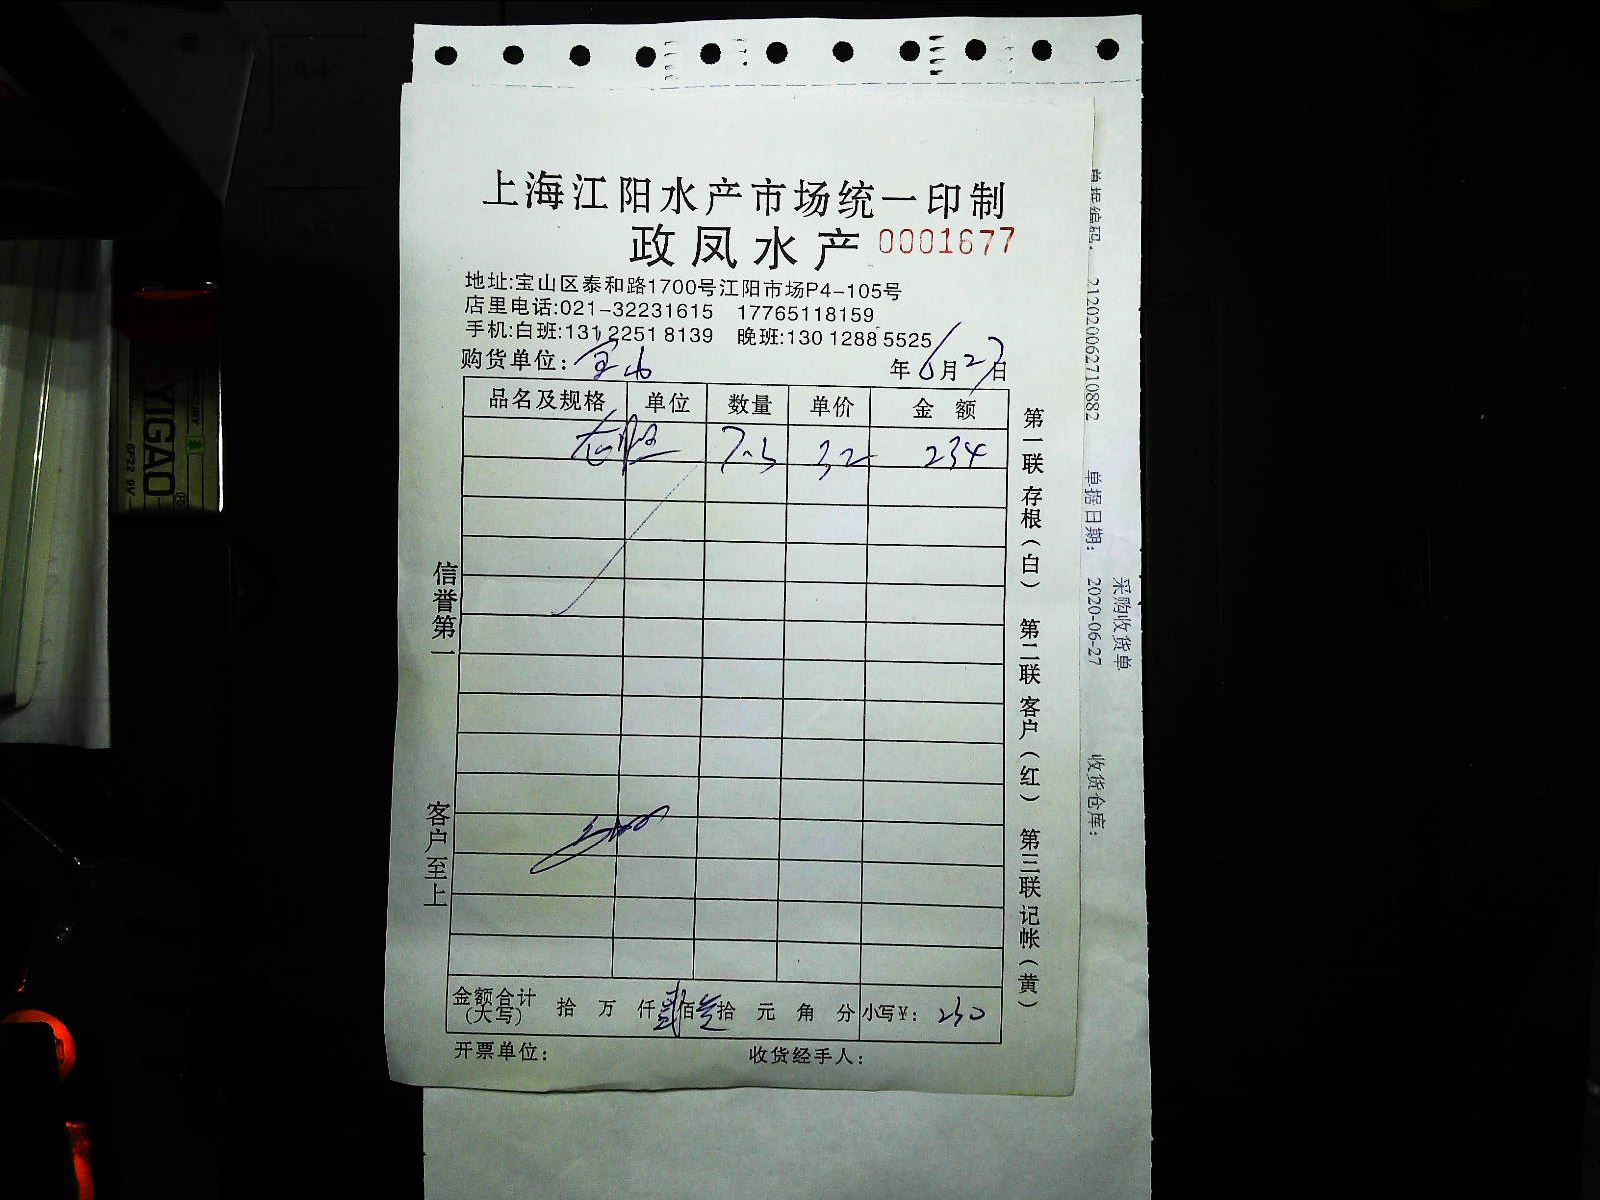 上海江阳水产市场统一印制
政凤水产 0001677
地址:宝山区泰和路1700号江阳市场P4-105号
店里电话:021-32231615 17765118159
手机:白班:131 2251 8139 晚班:130 1288 5525
购货单位: 宝山 年6月27日
品名及规格 单位 数量 单价 金额
7.3 32 234
信誉第一
客户至上
第一联存根(白) 第二联客户(红) 第三联记帐(黄)
金额合计(大写) 拾 万 仟贰佰叁拾 元 角 分 小写¥: 230
开票单位: 收货经手人:
采购收货单
单据编码: 212020062710882 单据日期: 2020-06-27 收货仓库:
YIGAO
6F22 9V